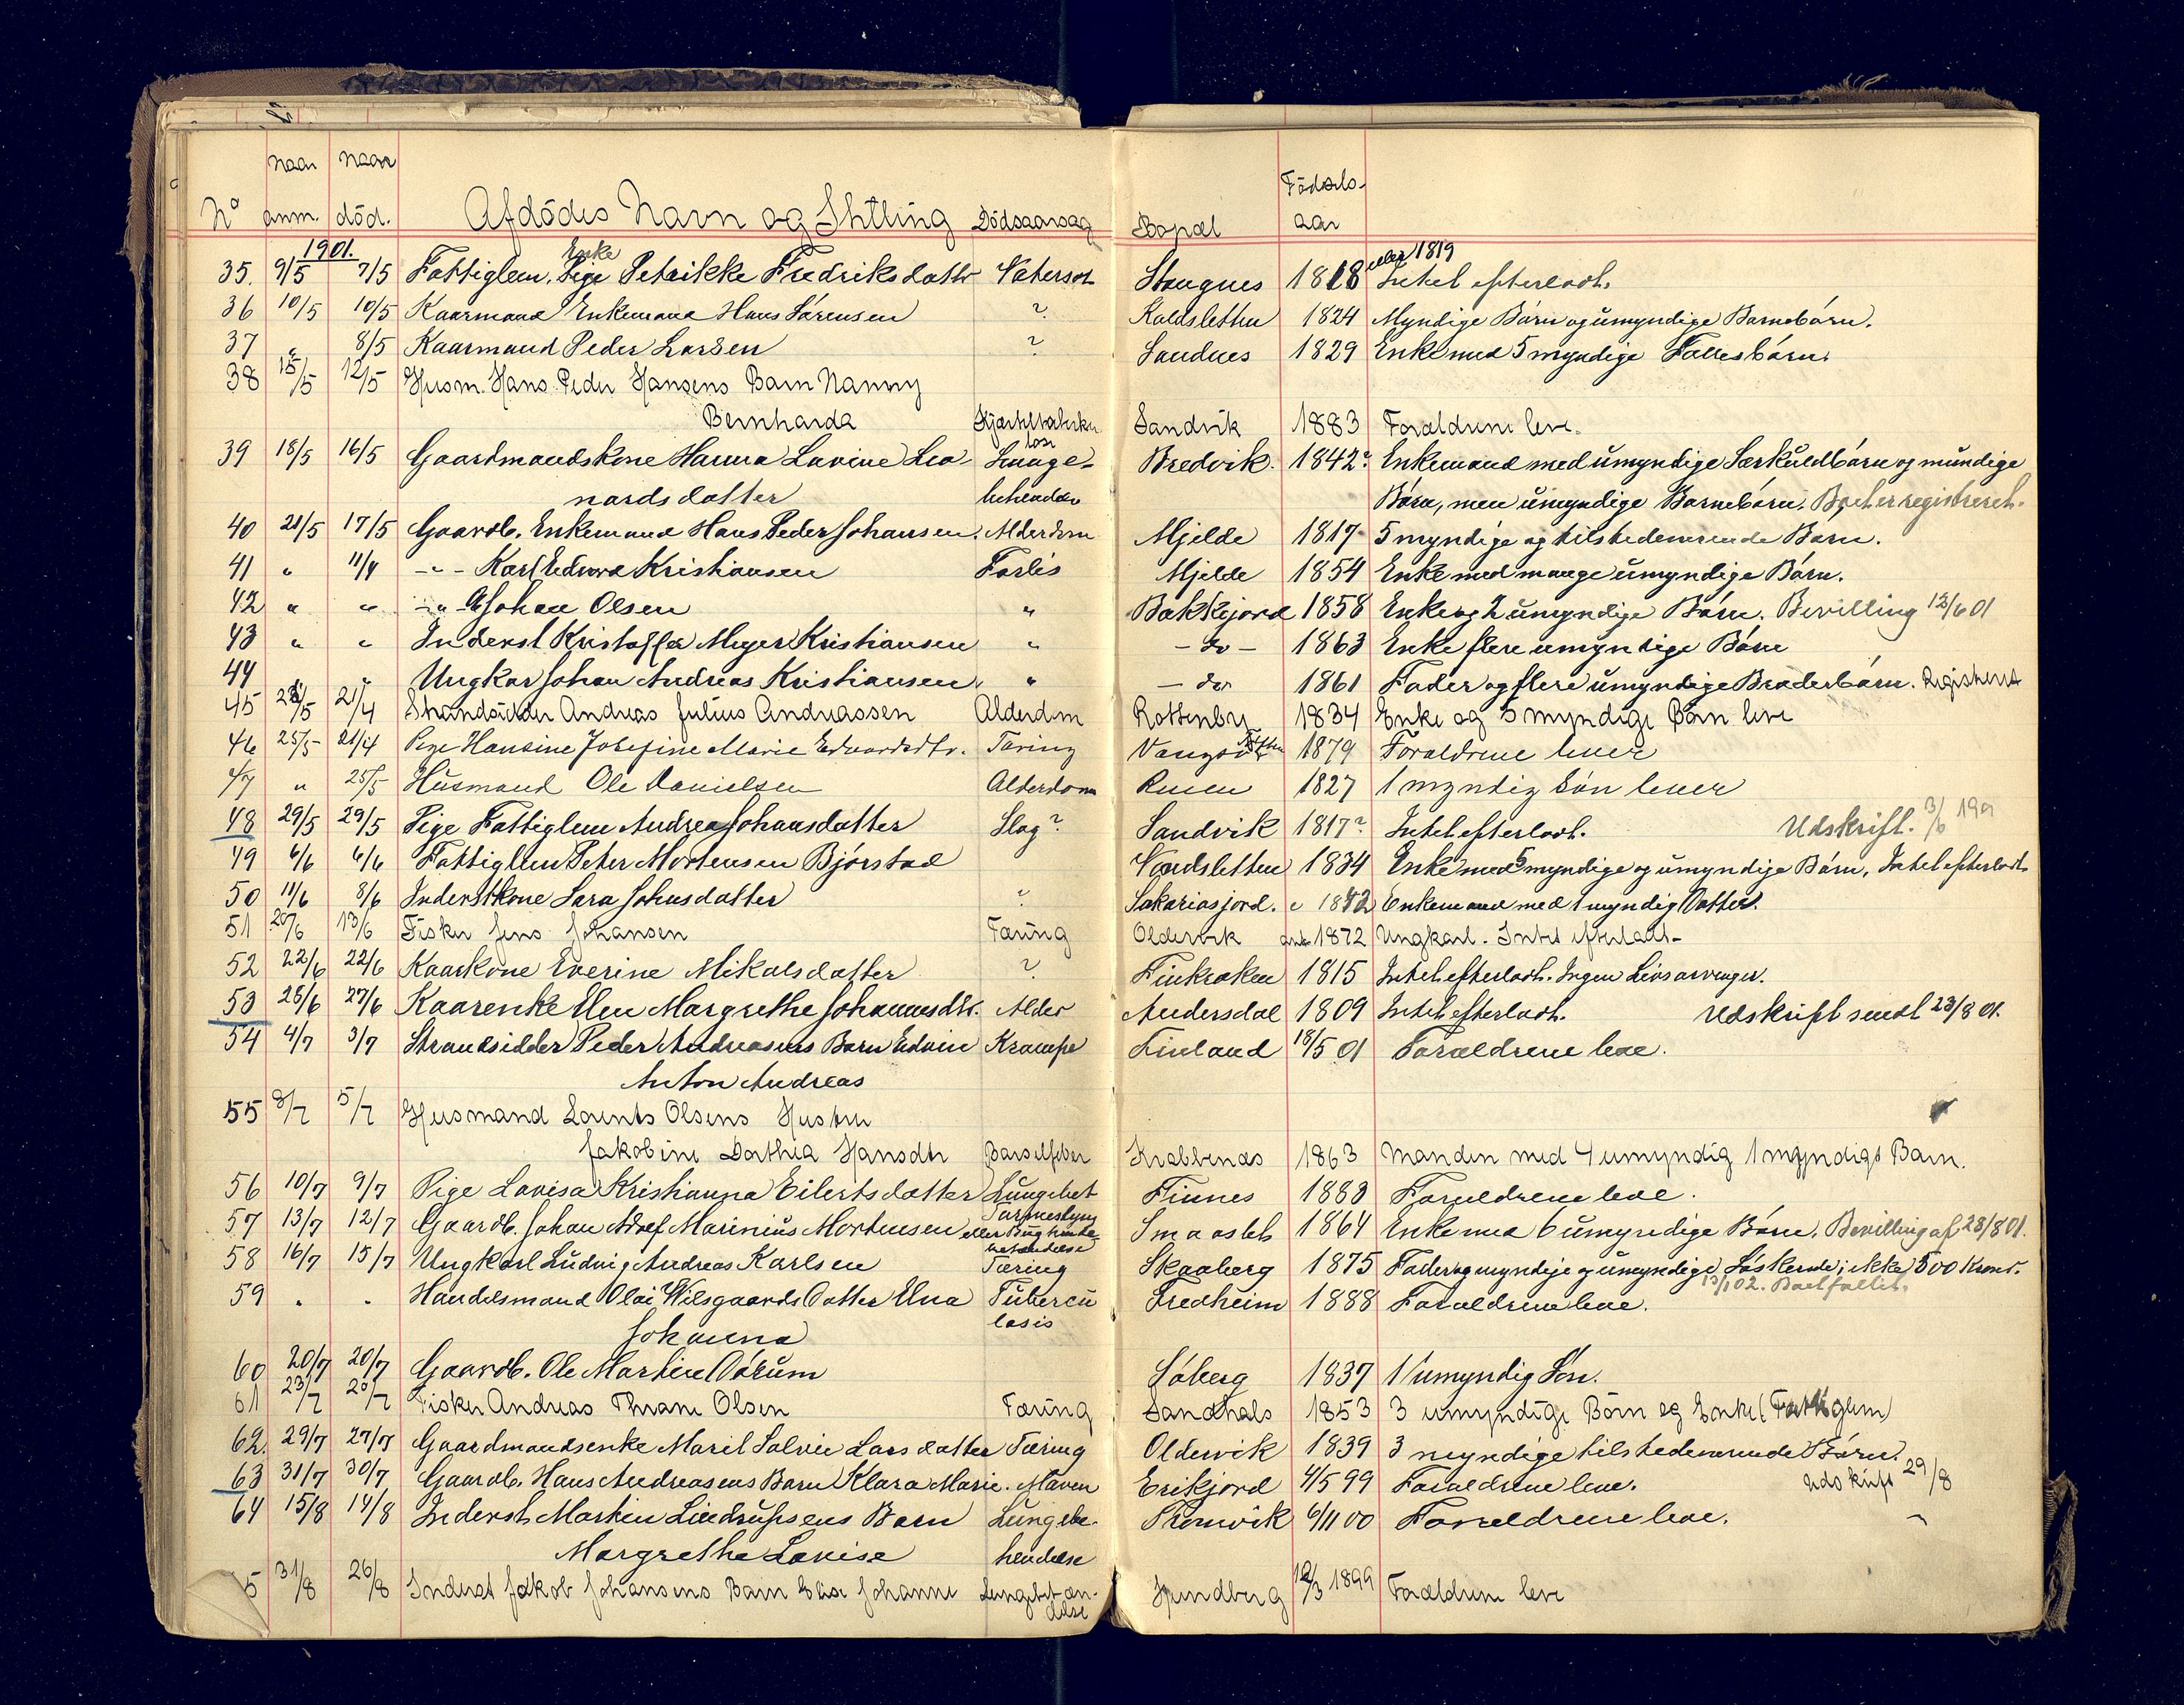 Naar Naar Fødsels-
No anm. död. Afdödes Navn og Stilling Dödsaarsag Bopæl aar
1901. Enke eller 1819
35. 9/5 7/5 Fattiglem. Pige Petrikke Fredriksdatter Vatersot Stougnes 1818 Intet efterladt.
36 10/5 10/5 Kaarmand Enkemand Hans Sörensen ? Kaldsletten 1824 Myndige Börn og umyndige Barnebörn.
37 " 8/5 Kaarmand Peder Larsen ? Sandnes 1829 Enke med 5 myndige Fællesbörn.
38 15/5 12/5 Husm. Hans Peder Hansens Barn Nanny
Bernharda Sandvik 1883 Forældrene leve.
39 18/5 16/5 Gaardmandskone Hanna Lovine Leo- Lunge- Bredvik. 1842? Enkemand med umyndige Særkuldbörn og mündige
nardsdatter betændelse Börn, men umyndige Barnebörn. Boet er registreret.
40 21/5 17/5 Gaardb. Enkemand Hans Peder Johansen. Alderdom Mjelde 1817 5 myndige og tilstedeværende Børn.
41 " 11/4 -"- Karl Edvard Kristiansen Forlis Mjelde 1854 Enke med mange umyndige Börn.
42 " " -"- Johan Olsen " Bakkejord 1858 Enke og 2 umyndige Börn. Bevilling 12/6 01
43 " " Inderst Kristoffer Meyer Kristiansen " - do - 1863 Enke flere umyndige Börn
44 " Ungkar Johan Andreas Kristiansen. " - do - 1861 Fader og flere umyndige Broderbörn. Registrert
45 22/5 21/4 Strandsidder Andreas Julius Andreassen Alderdom Rottenby 1834 Enke og 5 myndige Børn leve
46 25/5 21/4 Pige Hansine Josefine Marie Edvardsdtr. Tæring 1879 Forældrene lever
47 " 25/5 Husmand Ole Danielsen Alderdom 1827 1 myndig Sön lever
48 29/5 29/5 Pige Fattiglem Andrea Johansdatter Slag? Sandvik 1817? Intet efterladt. Udskrift. 3/6 1901
49 6/6 6/6 Fattiglem Peter Mortensen Bjørstad 1834 Enke med 5 myndige og umyndige Börn, Intet efterladt.
50 11/6 8/6 Inderstkone Sara Johnsdatter ? Sakariasjord. Enkemand med 1 myndig Datter.
51 20/6 13/6 Fisker Jens Johansen Tæring Oldervik 1872 Ungkarl. Intet efterladt-
52 22/6 22/6 Kaarkone Everine Mikalsdatter ? Finkroken 1815 Intet efterladt. Ingen Livsarvinger.
53 28/6 27/6 Kaarenke Elen Margrethe Johannesdtr. Alder Andersdal 1809 Intet efterladt. Udskrift sendt 23/8 01.
54 4/7 3/7 Strandsidder Peder Andreasens Barn Edvin Krampe Finland 18/5 01 Forældrene leve.
Anton Andreas
55 8/7 5/7 Husmand Lorents Olsens Hustru
Jakobine Dorthea Hansdtr Barselfeber Krabbenæs 1863 Manden med 4 umyndig 1 myndigt Barn.
56 10/7 9/7 Pige Lovisa Kristianna Eilertsdatter Lungebet Finnes 1883 Forældrene leve.
57 13/7 12/7 Gaardb. Johan Adolf Marinius Mortensen eller Bughinde- Smaaslet 1864 Enke med 6 umyndige Börn. Bevilling af 28/8 01.
betændelse
58 16/7 15/7 Ungkarl Ludvig Andreas Karlsen Tæring Skaaberg 1875 Fader og myndige og umyndige Söskende; ikke 500 Kroner.
13/1 02. Boet fallit.
59 " " Handelsmand Olai Wilsgaards Datter Elna Tübercu Fredheim 1888 Forældrene leve.
Johanna losis
60 20/7 20/7 Gaardb. Ole Martin Aarum Söberg 1837 1 umyndig Sön.
61 23/7 20/7 Fisker Andreas Thrane Olsen Tæring Sandhals 1853 3 umyndige Börn og Enke (Fattiglem)
62. 29/7 27/7 Gaardmandsenke Marit Salvie Larsdatter Tæring Oldervik 1839 3 myndige tilstedeværende Börn.
63 31/7 30/7 Gaardb. Hans Andreasens Barn Klara Marie. Maven Erikjord 4/5 99 Forældrene leve. Udskrift 29/8
64 15/8 14/8 Inderst Martin Lindrupsens Barn Lungebe- Tromvik 6/11 00 Forældrene leve.
Margrethe Lovise tændelse
5 31/8 26/8 Inderst Jakob Johansens Barn Elise Johanne Lungebetæn- Hundberg 12/3 1899 Forældrene leve
delse